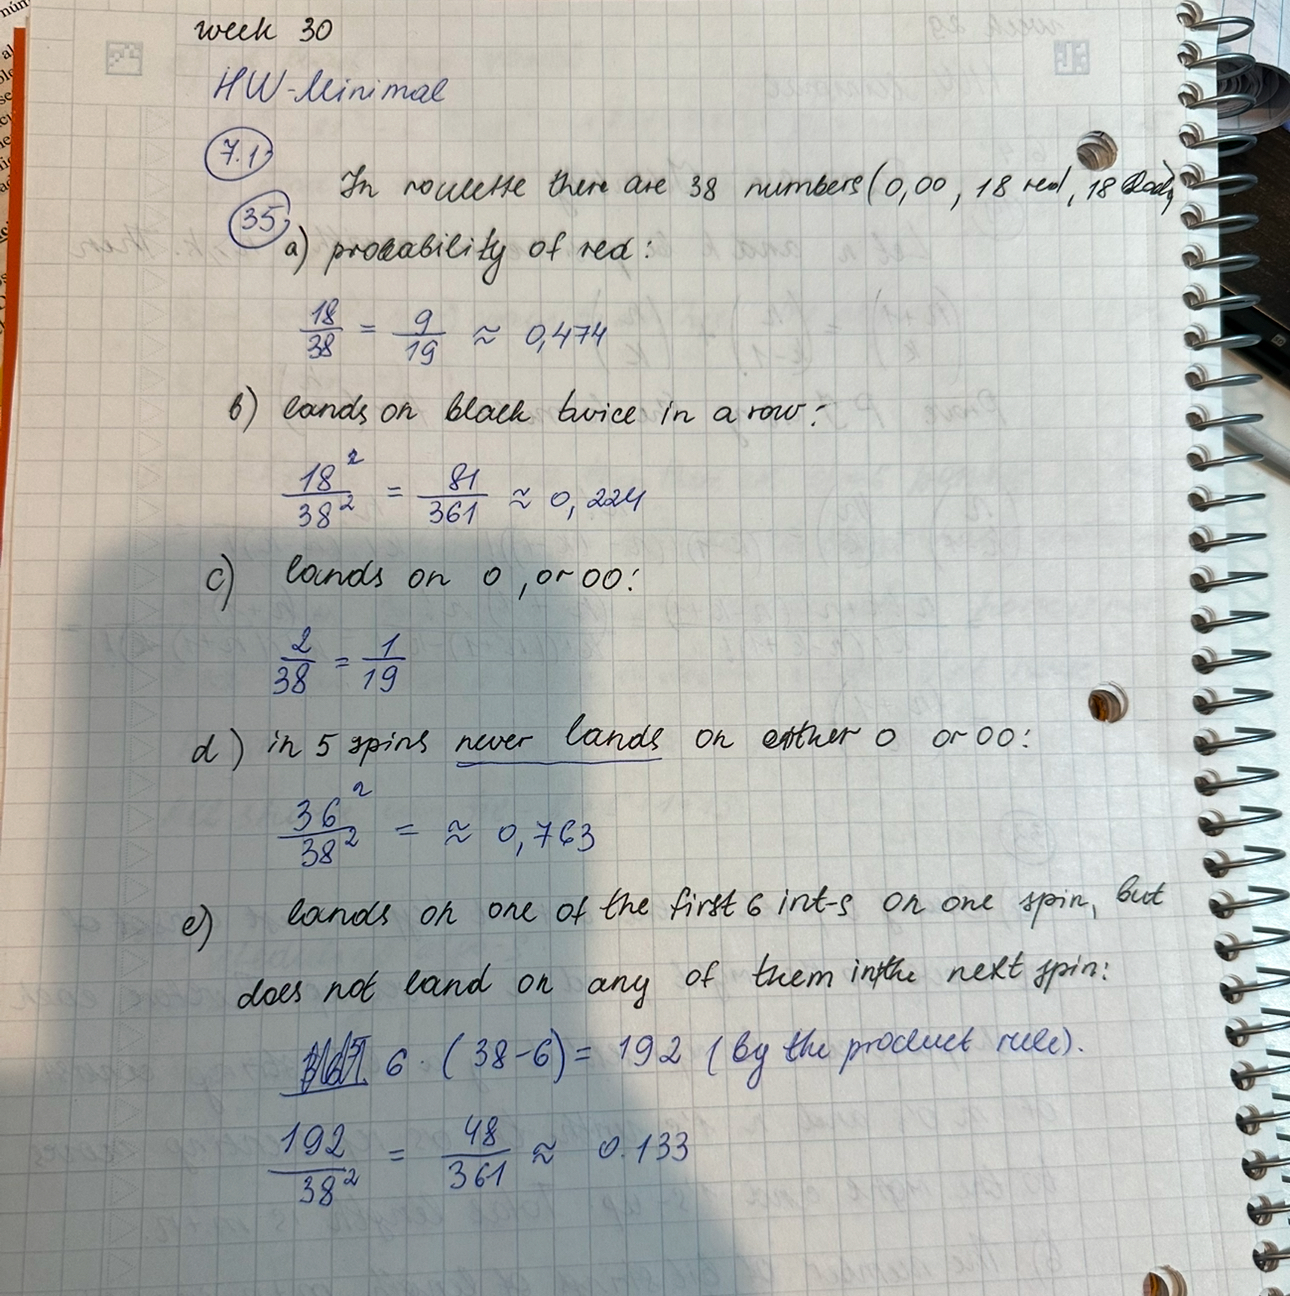 week 30
HW-Minimal
7.1
In roulette there are 38 numbers (0,00, 18 red, 18 black)
35
a) probability of red:
18/38 = 9/19 ≈ 0,474
b) lands on black twice in a row:
18²/38² = 81/361 ≈ 0,224
c) lands on 0, or 00:
2/38 = 1/19
d) in 5 spins never lands on either 0 or 00:
36²/38² = ≈ 0,763
e) lands on one of the first 6 int-s on one spin, but
does not land on any of them in the next spin:
6·(38-6)= 192 (by the product rule).
192/38² = 48/361 ≈ 0.133